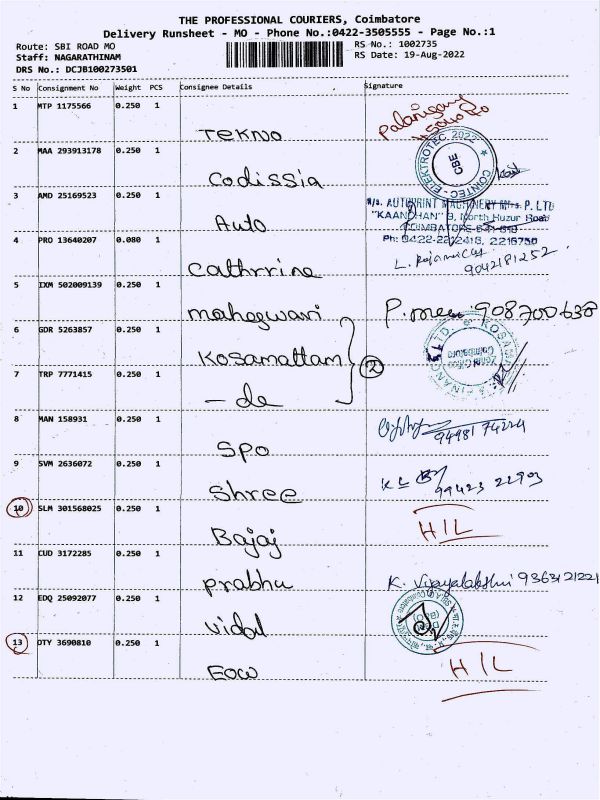 THE PROFESSIONAL COURIERS, Coimbatore
Delivery Runsheet - MO - Phone No.:0422-3505555 - Page No.:1
Route: SBI ROAD MO
RS No.: 1002735
Staff: NAGARATHINAM
RS Date: 19-Aug-2022
DRS No.: DCJB100273501
S No Consignment No Weight PCS Consignee Details Signature
1 MTP 1175566 0.250 1
Tekno
2 MAA 293913178 0.250 1
COINTEC-ELEKTROTEC 2022 CBE
Codissia
3 AMD 25169523 0.250 1
"KAANDHAN" 9, North Huzur Road
Auto
COIMBATORE
4 PRO 13640207 0.080 1
Ph: 0422-2212418, 2216750
Cathrrine
9042181252
5 IXM 502009139 0.250 1
maheswari
908700638
6 GDR 5263857 0.250 1
Kosamattam
2
7 TRP 7771415 0.250 1
- do
8 MAN 158931 0.250 1
Spo
94981 74224
9 SVM 2636072 0.250 1
Shree
99423 22903
10 SLM 301568025 0.250 1
H/L
Bajaj
11 CUD 3172285 0.250 1
Prabhu
K. Vijayalakshmi 9363121221
12 EDQ 25092077 0.250 1
Vidal
13 OTY 3690810 0.250 1
H/L
Eow